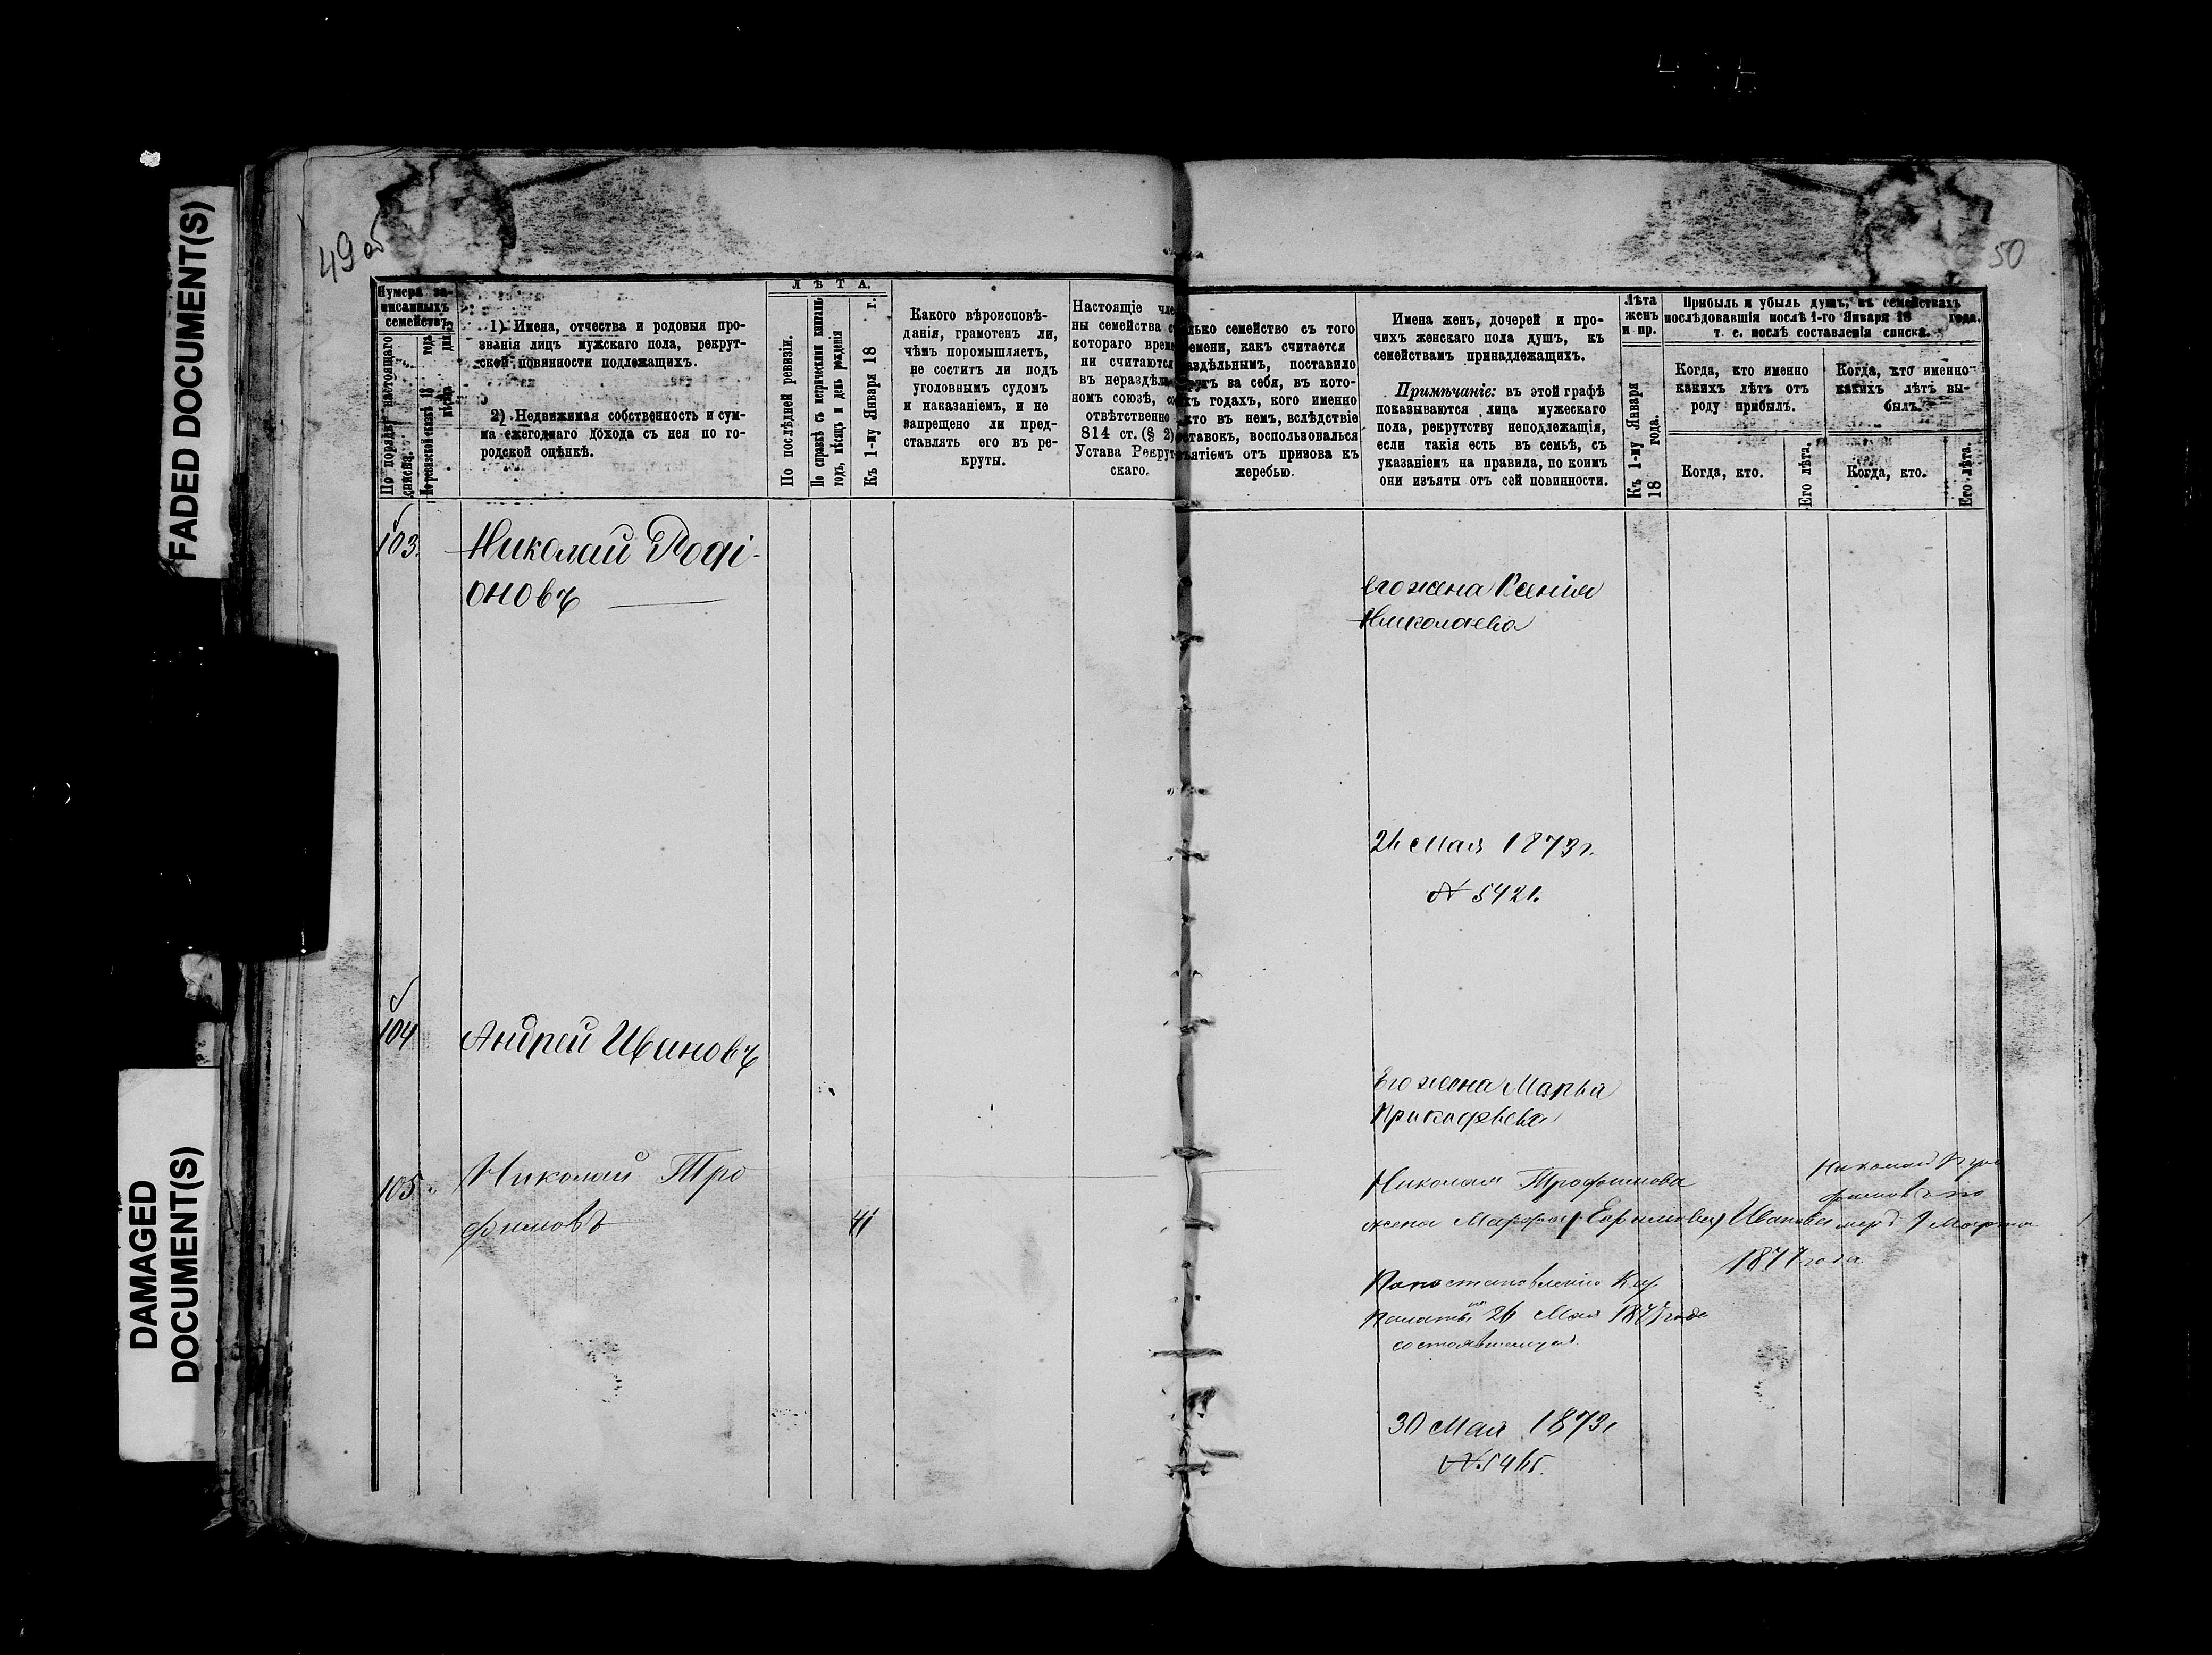 FADED DOCUMENT(S)
DAMAGED
DOCUMENT(S)
49 об
50
Нумера за-
писанныхъ
семействъ.
По порядку настоящаго
списка.
По ревизской сказкѣ 18 года
1) Имена, отчества и родовыя про-
званія лицъ мужскаго пола, рекрут-
ской повинности подлежащихъ.
2) Недвижимая собственность и сум-
ма ежегоднаго дохода съ нея по го-
родской оцѣнкѣ.
ЛѢТА.
По послѣдней ревизіи.
По справкѣ съ метрическими книгами
годъ, мѣсяцъ и день рожденія
Къ 1-му Января 18 г.
Какого вѣроисповѣ-
данія, грамотенъ ли,
чѣмъ поромышляетъ,
не соститъ ли подъ
уголовнымъ судомъ
и наказаніемъ, и не
запрещено ли пред-
ставлять его въ ре-
круты.
Настоящіе чле
ны семейства с
котораго време
ни считаются
въ нераздѣль
номъ союзѣ, со
отвѣтственно
814 ст. (§ 2)
Устава Рекрут
скаго.
лько семейство съ того
емени, какъ считается
аздѣльнымъ, поставило
за себя, въ кото-
хъ годахъ, кого именно
кто въ немъ, вслѣдствіе
ставокъ, воспользовался
ъятіемъ отъ призова къ
жеребью.
Имена женъ, дочерей и про-
чихъ женскаго пола душъ, къ
семействамъ принадлежащихъ.
Примѣчаніе: въ этой графѣ
показываются лица мужескаго
пола, рекрутству неподлежащія,
если такія есть въ семьѣ, съ
указаніемъ на правила, по коимъ
они изъяты отъ сей повинности.
Лѣта
женъ
и пр.
Къ 1-му Января
18 года.
Прибыль и убыль душъ, въ семействахъ
послѣдовавшія послѣ 1-го Января 18 года,
т. е. послѣ составленія списка.
Когда, кто именно
какихъ лѣтъ отъ
роду прибылъ.
Когда, кто именно
какихъ лѣтъ вы-
былъ.
Когда, кто.
Его лѣта.
Когда, кто.
Его лѣта.
103. Николай Роді-
оновъ
его жена Ксенія
Николаева
26 Мая 1873 г.
№ 5421.
104 Андрей Ивановъ
Его жена Марья
105. Николай Тро
фимовъ 41
Николая Трофимова
жена Марфа Ивановы
Николай
фимовъ по
мерд 9 Марта
1877 года.
По постановленію
Палаты 26 Мая года
состоявшемуся.
30 Мая 1873 г
№ 5465.